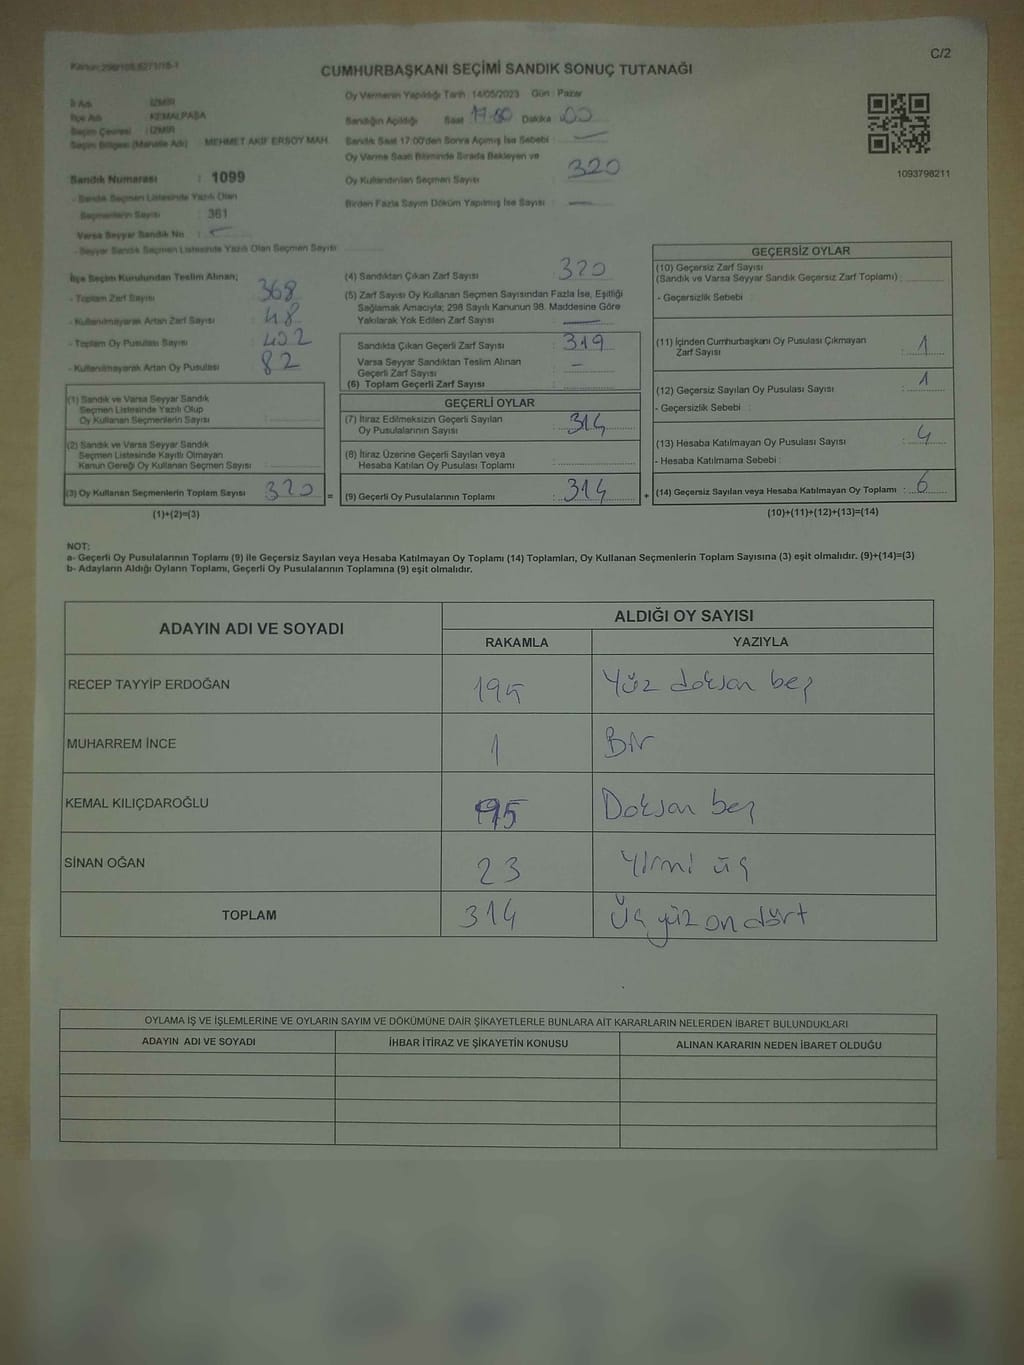 Kanun: 298/108,6271/16-1
C/2
CUMHURBAŞKANI SEÇİMİ SANDIK SONUÇ TUTANAĞI
İl Adı : İZMİR
İlçe Adı : KEMALPAŞA
Seçim Çevresi : İZMİR
Seçim Bölgesi (Mahalle Adı) : MEHMET AKİF ERSOY MAH.
Sandık Numarası : 1099
- Sandık Seçmen Listesinde Yazılı Olan
Seçmenlerin Sayısı : 361
Varsa Seyyar Sandık No :
- Seyyar Sandık Seçmen Listesinde Yazılı Olan Seçmen Sayısı :
Oy Vermenin Yapıldığı Tarih : 14/05/2023 Gün : Pazar
Sandığın Açıldığı Saat 17:00 Dakika :00
Sandık Saat 17:00'den Sonra Açılmış İse Sebebi : —
Oy Verme Saati Bitiminde Sırada Bekleyen ve
Oy Kullandırılan Seçmen Sayısı : 320
Birden Fazla Sayım Döküm Yapılmış İse Sayısı : —
1093798211
İlçe Seçim Kurulundan Teslim Alınan;
- Toplam Zarf Sayısı : 368
- Kullanılmayarak Artan Zarf Sayısı : 48
- Toplam Oy Pusulası Sayısı : 402
- Kullanılmayarak Artan Oy Pusulası : 82
(1) Sandık ve Varsa Seyyar Sandık
Seçmen Listesinde Yazılı Olup
Oy Kullanan Seçmenlerin Sayısı :
(2) Sandık ve Varsa Seyyar Sandık
Seçmen Listesinde Kayıtlı Olmayan
Kanun Gereği Oy Kullanan Seçmen Sayısı :
(3) Oy Kullanan Seçmenlerin Toplam Sayısı : 320 =
(1)+(2)=(3)
(4) Sandıktan Çıkan Zarf Sayısı : 320
(5) Zarf Sayısı Oy Kullanan Seçmen Sayısından Fazla İse, Eşitliği
Sağlamak Amacıyla; 298 Sayılı Kanunun 98. Maddesine Göre
Yakılarak Yok Edilen Zarf Sayısı : —
Sandıkta Çıkan Geçerli Zarf Sayısı : 319
Varsa Seyyar Sandıktan Teslim Alınan
Geçerli Zarf Sayısı : —
(6) Toplam Geçerli Zarf Sayısı :
GEÇERLİ OYLAR
(7) İtiraz Edilmeksizin Geçerli Sayılan
Oy Pusulalarının Sayısı : 314
(8) İtiraz Üzerine Geçerli Sayılan veya
Hesaba Katılan Oy Pusulası Toplamı :
(9) Geçerli Oy Pusulalarının Toplamı : 314 +
GEÇERSİZ OYLAR
(10) Geçersiz Zarf Sayısı
(Sandık ve Varsa Seyyar Sandık Geçersiz Zarf Toplamı) :
- Geçersizlik Sebebi :
(11) İçinden Cumhurbaşkanı Oy Pusulası Çıkmayan
Zarf Sayısı : 1
(12) Geçersiz Sayılan Oy Pusulası Sayısı : 1
- Geçersizlik Sebebi :
(13) Hesaba Katılmayan Oy Pusulası Sayısı : 4
- Hesaba Katılmama Sebebi :
(14) Geçersiz Sayılan veya Hesaba Katılmayan Oy Toplamı : 6
(10)+(11)+(12)+(13)=(14)
NOT:
a- Geçerli Oy Pusulalarının Toplamı (9) ile Geçersiz Sayılan veya Hesaba Katılmayan Oy Toplamı (14) Toplamları, Oy Kullanan Seçmenlerin Toplam Sayısına (3) eşit olmalıdır. (9)+(14)=(3)
b- Adayların Aldığı Oyların Toplamı, Geçerli Oy Pusulalarının Toplamına (9) eşit olmalıdır.
ADAYIN ADI VE SOYADI ALDIĞI OY SAYISI
RAKAMLA YAZIYLA
RECEP TAYYİP ERDOĞAN 195 Yüz doksan beş
MUHARREM İNCE 1 Bir
KEMAL KILIÇDAROĞLU 95 Doksan beş
SİNAN OĞAN 23 Yirmi üç
TOPLAM 314 Üç yüz on dört
OYLAMA İŞ VE İŞLEMLERİNE VE OYLARIN SAYIM VE DÖKÜMÜNE DAİR ŞİKAYETLERLE BUNLARA AİT KARARLARIN NELERDEN İBARET BULUNDUKLARI
ADAYIN ADI VE SOYADI İHBAR İTİRAZ VE ŞİKAYETİN KONUSU ALINAN KARARIN NEDEN İBARET OLDUĞU